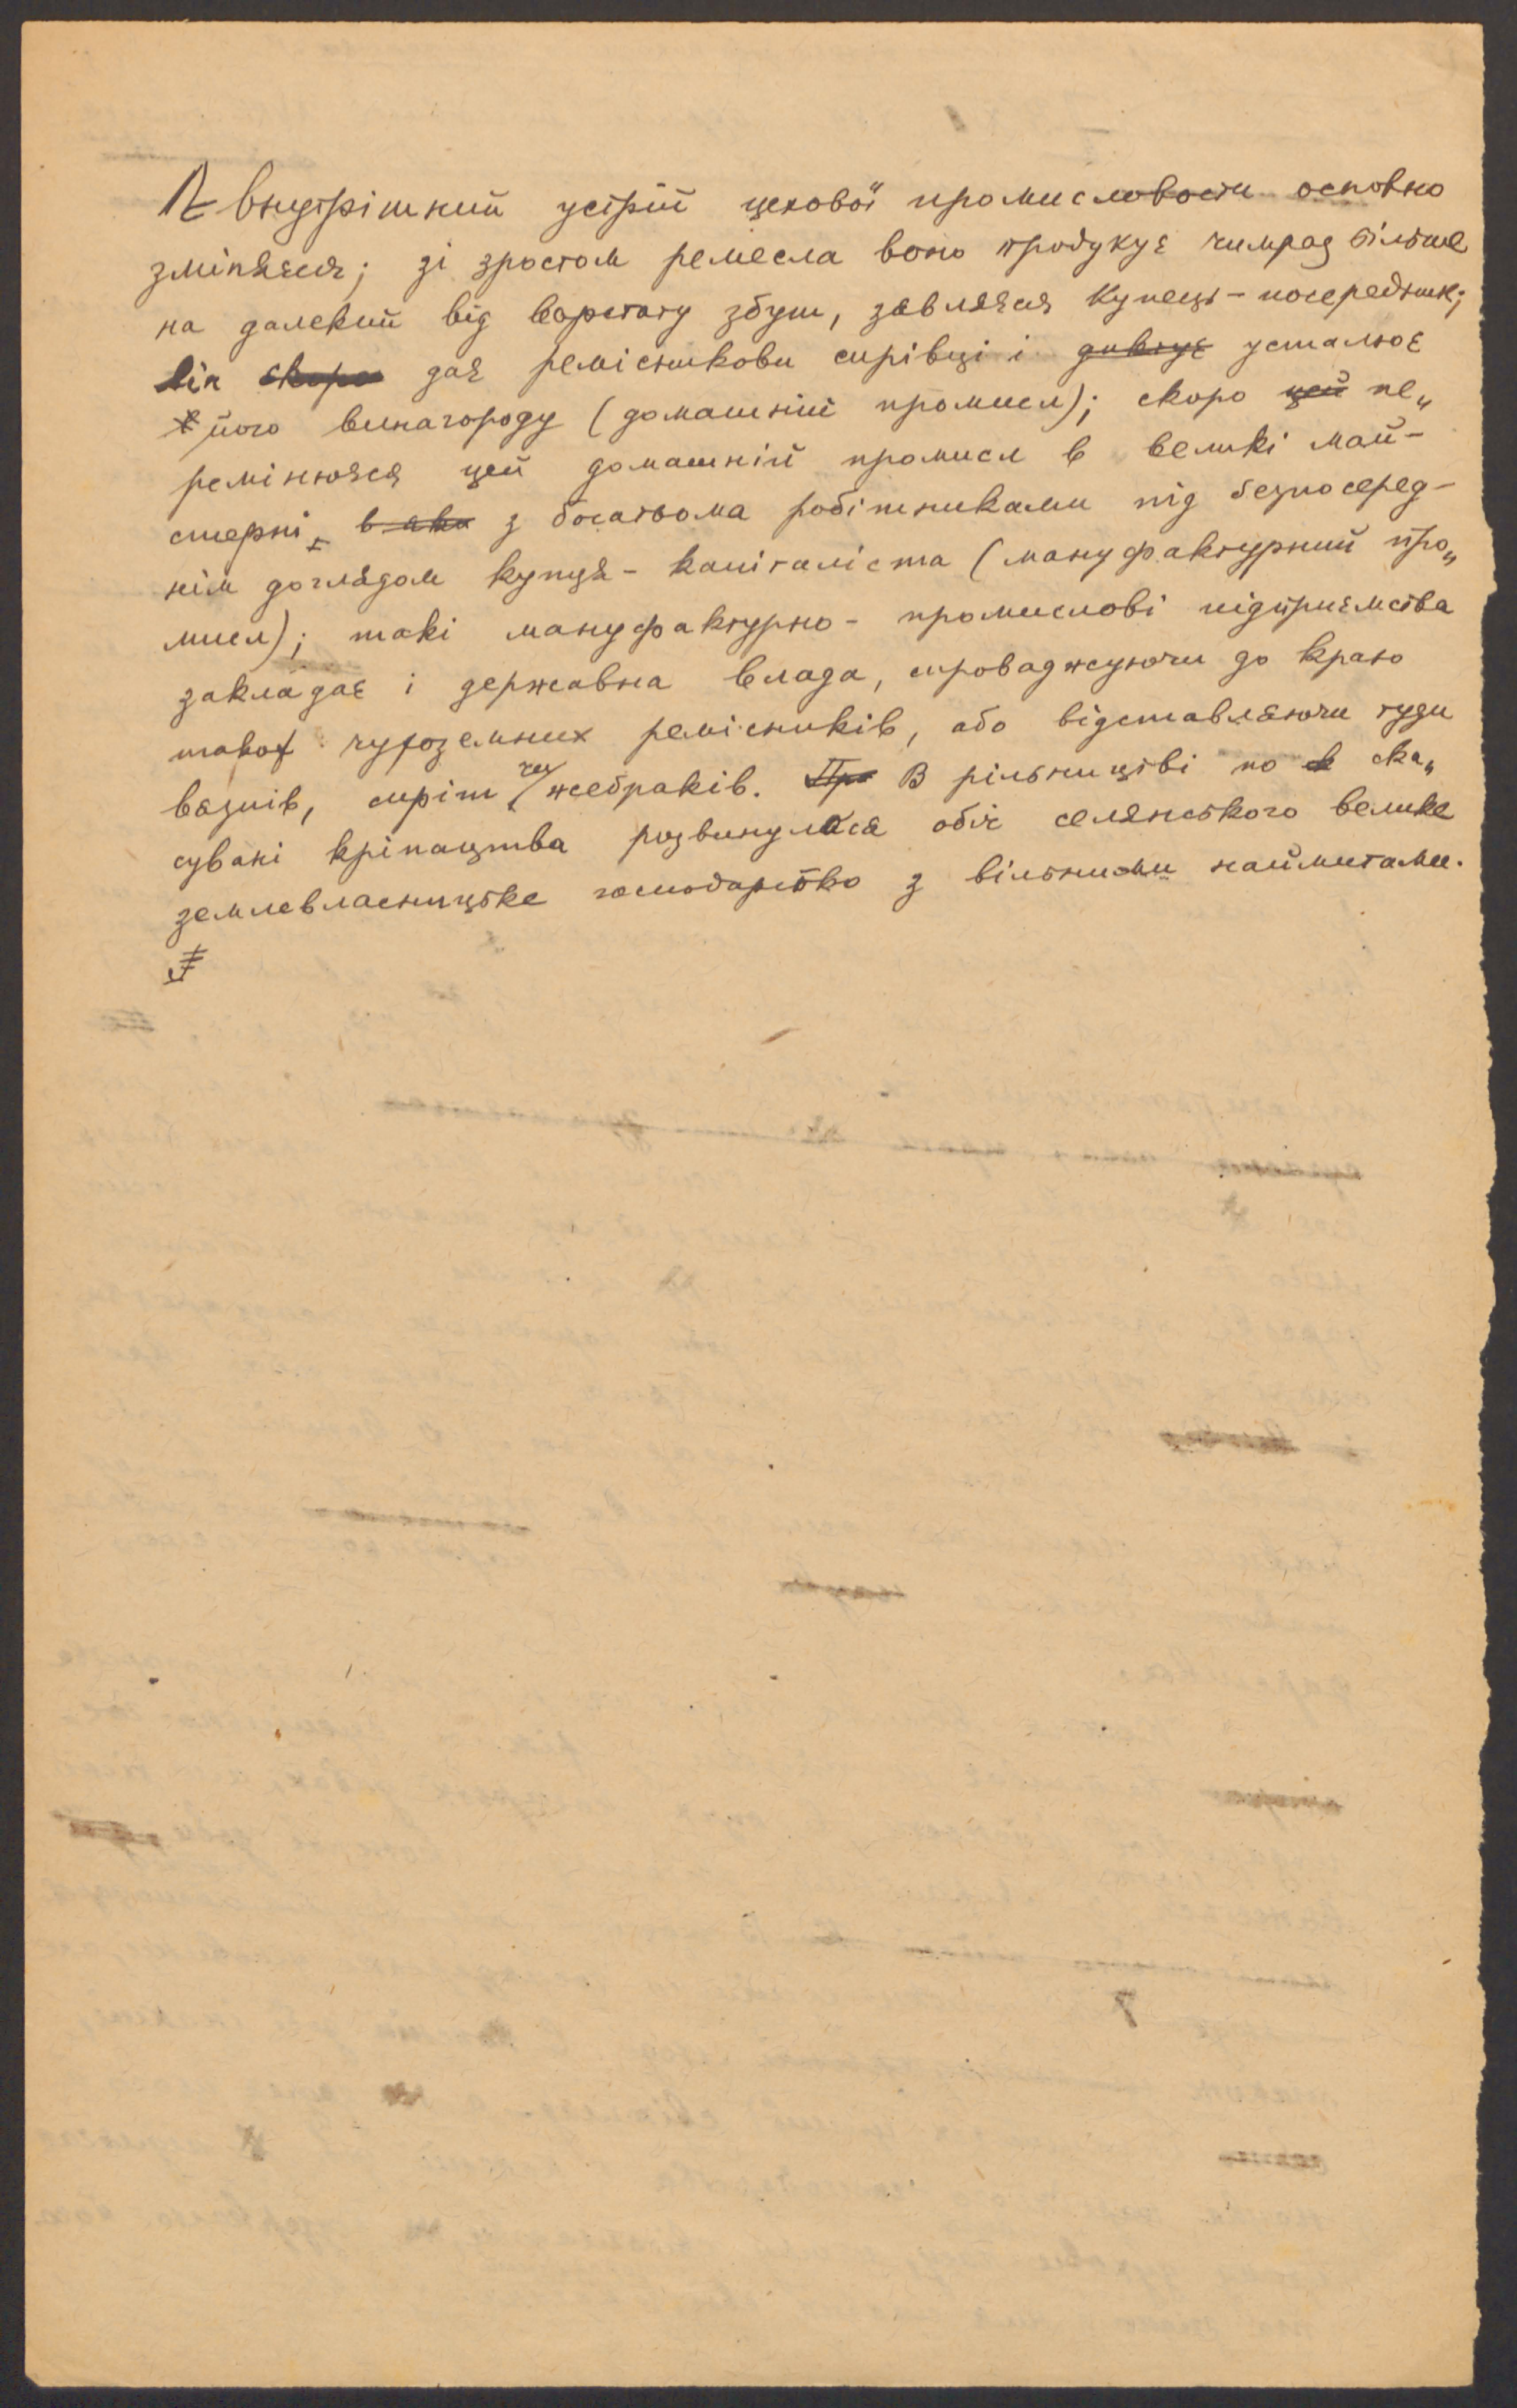 А внутрішний устрій цехової промисловости основно
зміняєся; зі зростом ремесла воно продукує чимраз більше
на далекий від варстату збут, зявляєся купець-посередник;
він скоро дає ремісникови сирівці і диктує усталює
його винагороду (домашний промисл); скоро цей пе„
ремінюєся цей домашний промисл в великі май-
стерні, в яки з богатьома робітниками під безпосеред-
нім доглядом купця-капіталіста (мануфактурний про„
мисл); такі мануфактурно-промислові підприємства
закладає і державна влада, спроваджуючи до краю
також чужоземних ремісників, або відставляючи туди
вязнів, сиріт чи жебраків. Про В рільництві по с ска„
суванні кріпацтва розвинулося обіч селянського велике
землевласницьке господарство з вільними наймитами.